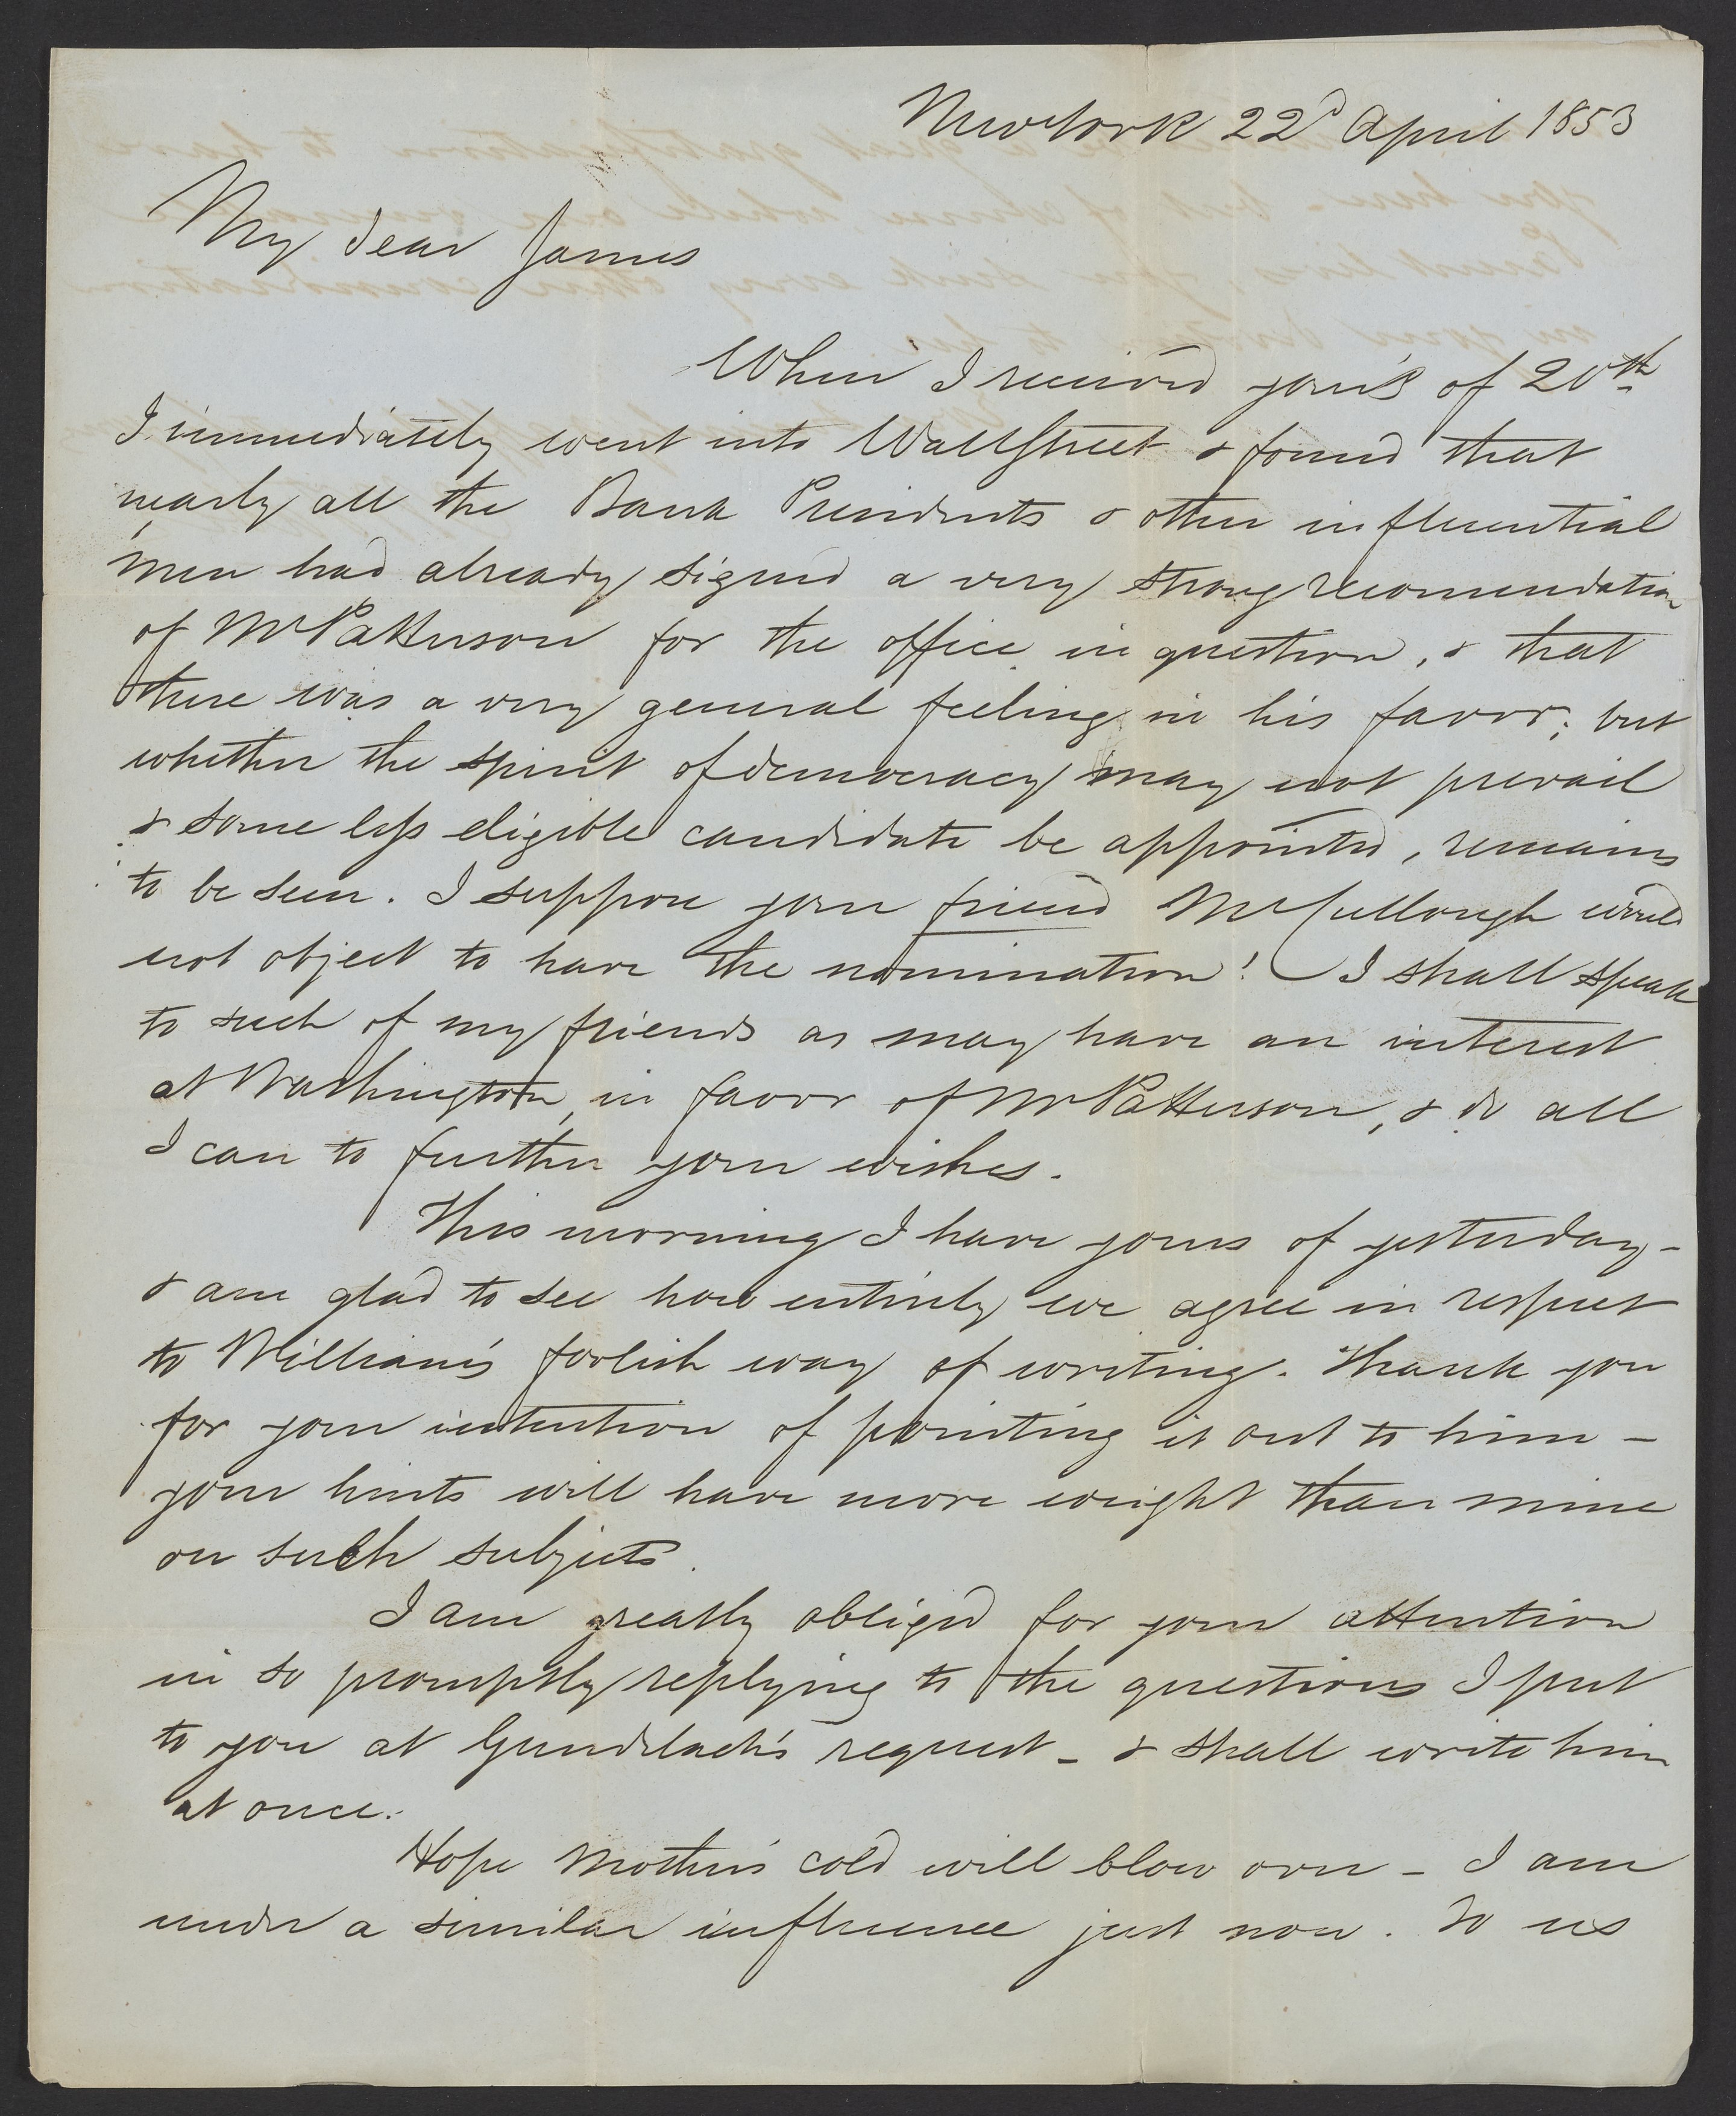 New York 22d April 1853
My dear James
When I received your's of 20th
I immediately went into Wall Street & found that
nearly all the Bank Presidents & other influential
men had already signed a very strong recomendation
of Mr Patterson for the office in question, & that
there was a very general feeling in his favor; but
whether the spirit of democracy may not prevail
& some less eligible candidate be appointed, remains
to be seen. I suppose your friend McCullough would
not object to have the nomination! I shall speak
to such of my friends as may have an interest
at Washington, in favor of Mr Patterson, & do all
I can to further your wishes.
This morning I have yours of yesterday -
& am glad to see how entirely we agree in respect
to William's foolish way of writing. Thank you
for your intention of pointing it out to him -
your hints will have more weight than mine
on such subjects.
I am greatly obliged for your attention
in so promptly replying to the questions I put
to you at Gundlach's request - & shall write him
at once.
Hope Mother's cold will blow over - I am
under a similar influence just now. To us